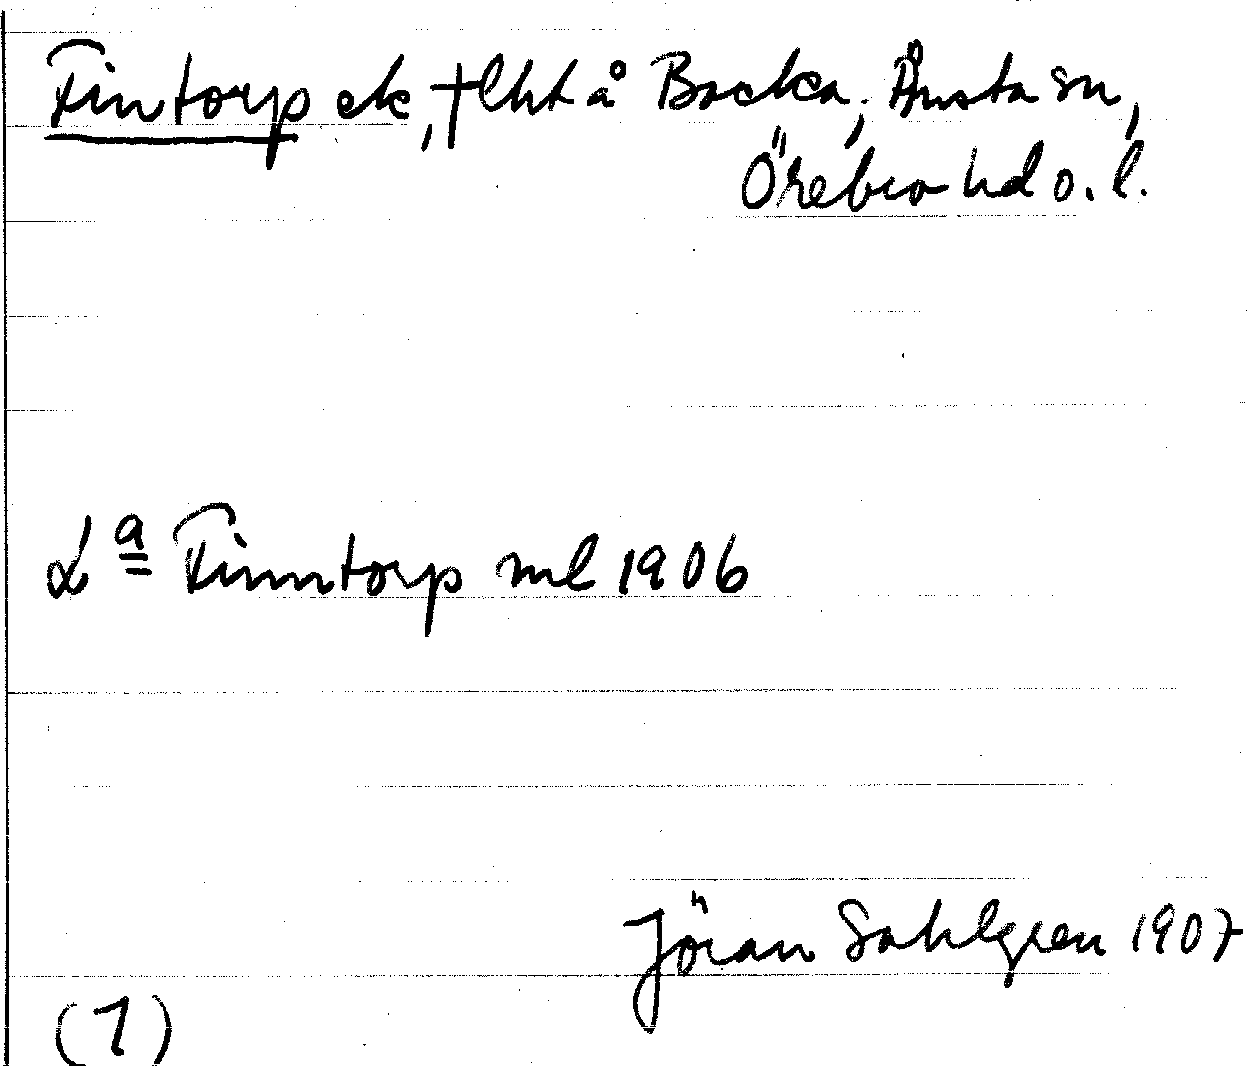 Fintorp ek, †lht å Backa, Ånsta sn,
Örebro hd o. l.
La Finntorp ml 1906
Jöran Sahlgren 1907
(1)